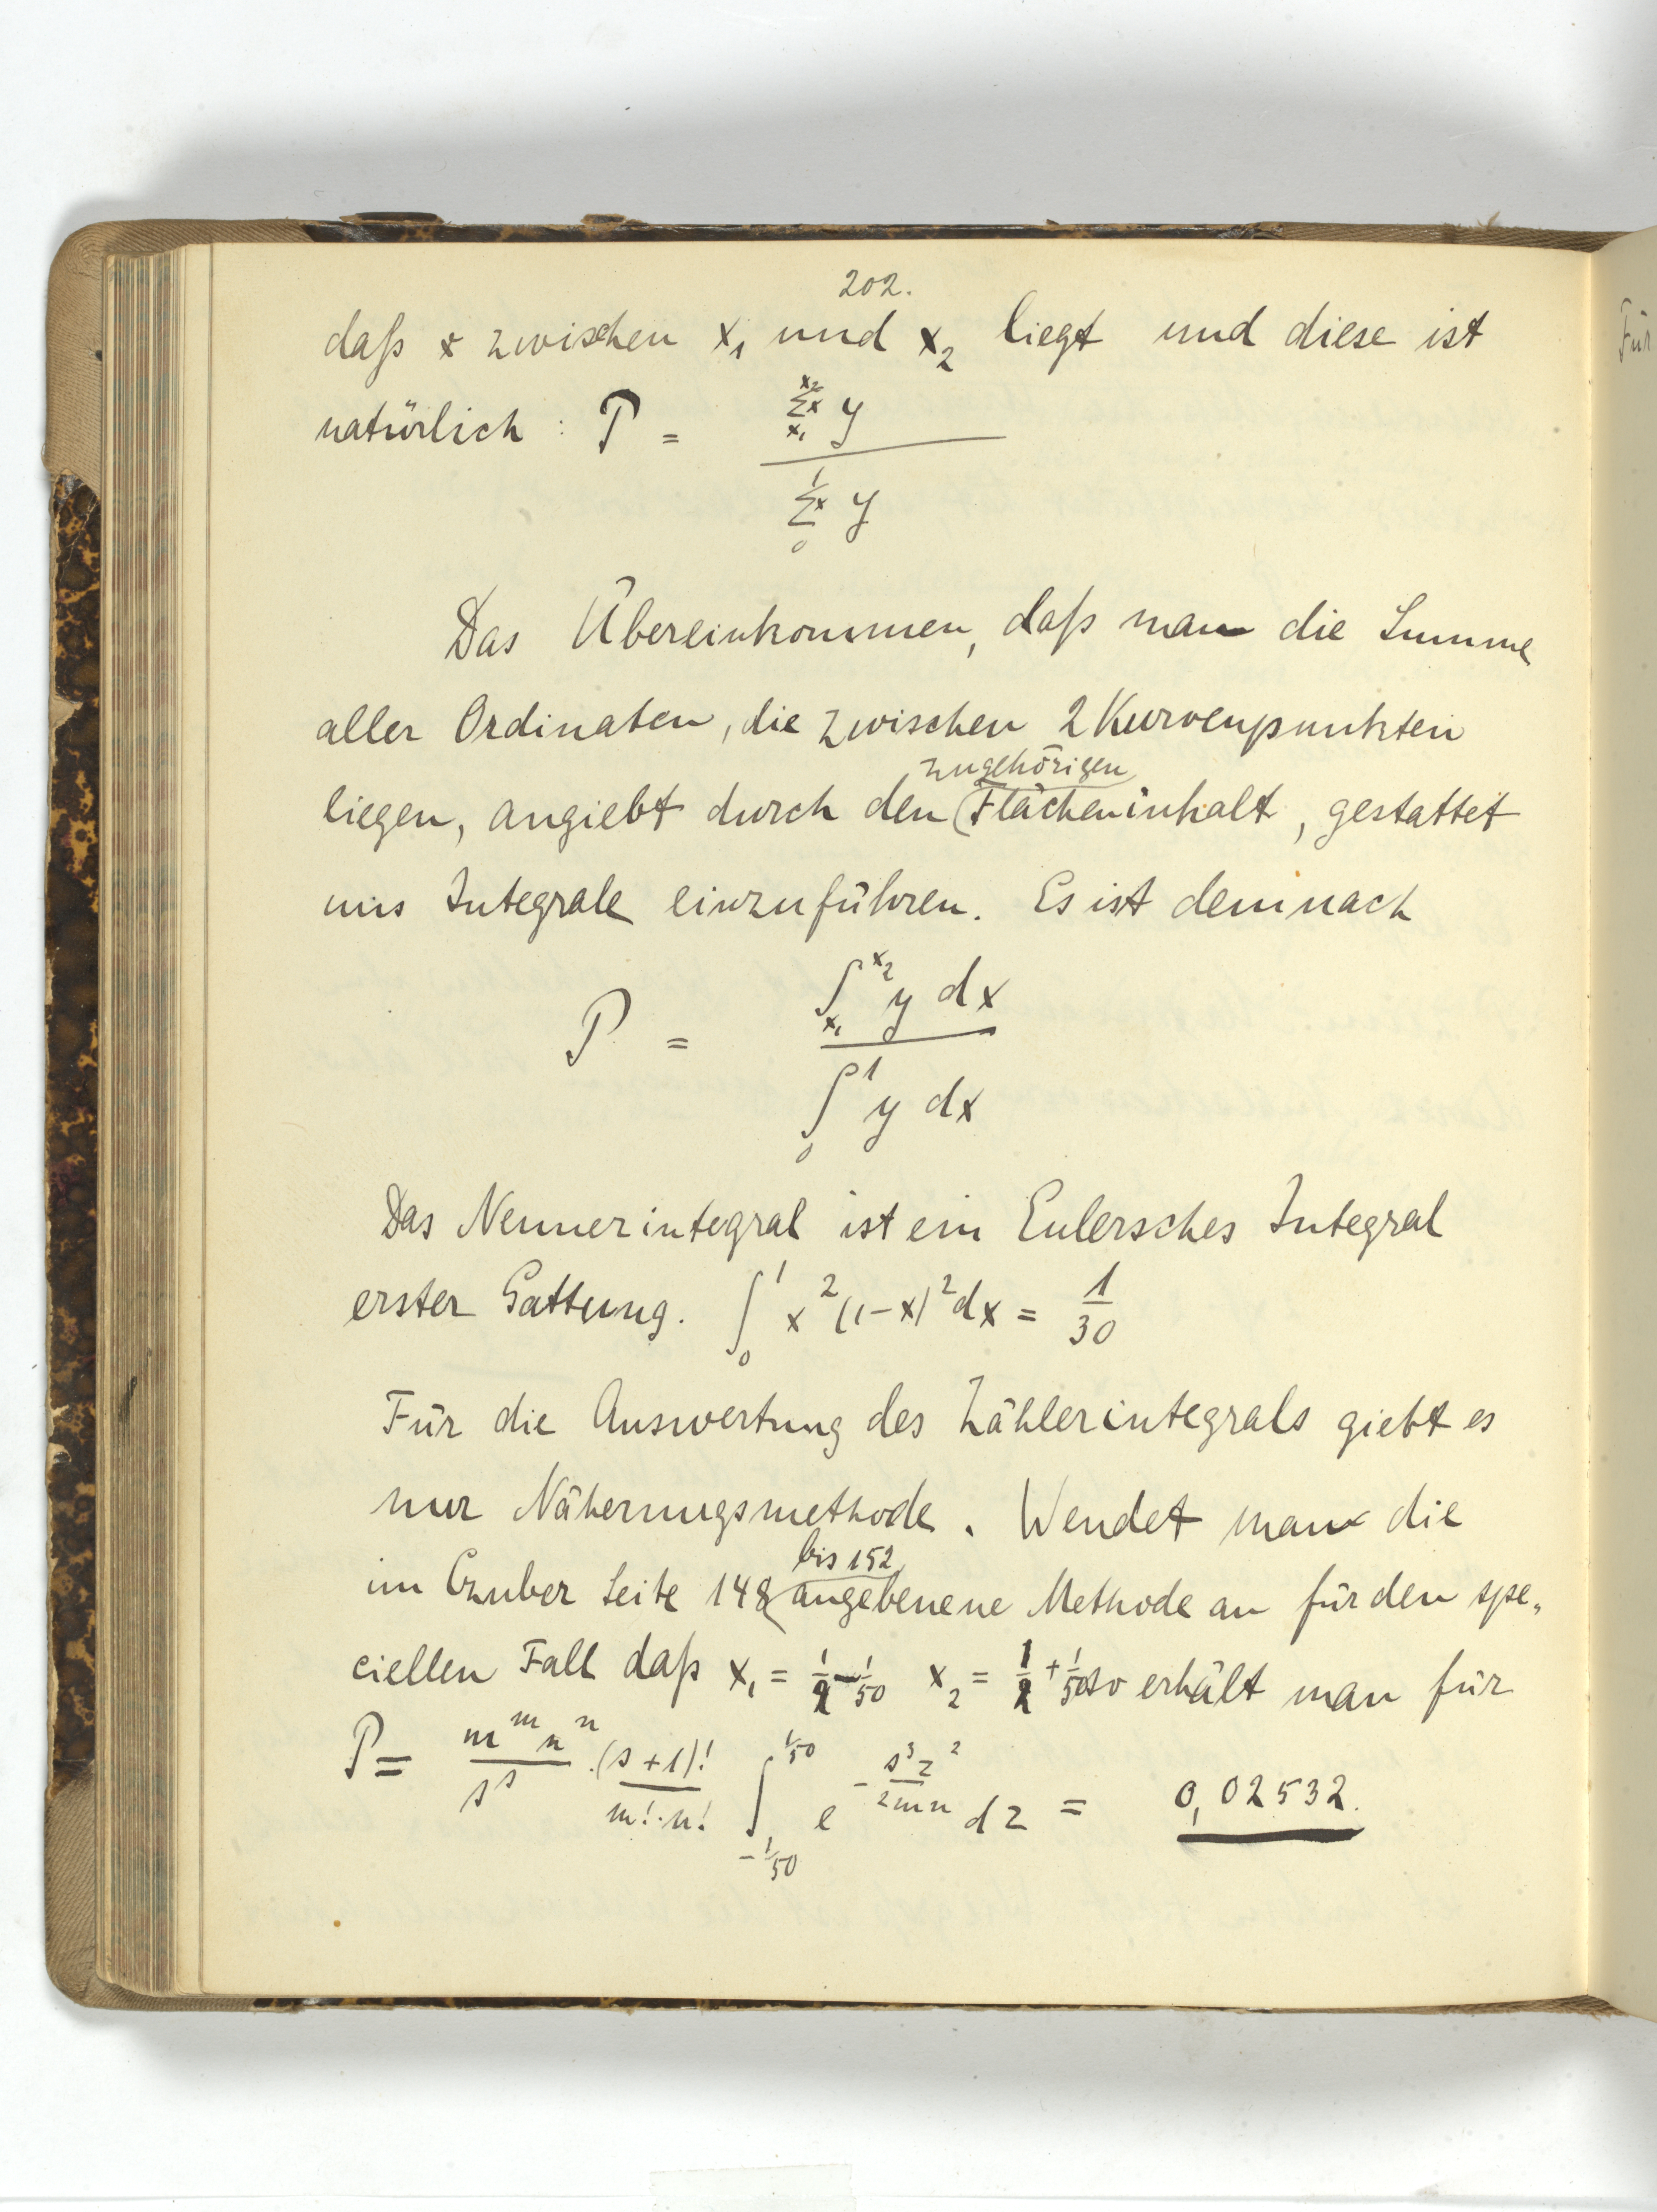 202.
daß x zwischen x₁ und x₂ liegt und diese ist
natürlich : P = \frac{\sum_{x_1}^{x_2} x y}{\sum_{0}^{1} x y}
Das Übereinkommen, daß man die Summe
aller Ordinaten, die zwischen 2 Kurvenpunkten
zugehörigen
liegen, angiebt durch den (Flächeninhalt, gestattet
uns Integrale einzuführen. Es ist demnach
P = \frac{\int_{x_1}^{x_2} y dx}{\int_0^1 y dx}
Das Nennerintegral ist ein Eulersches Integral
erster Gattung. \int_0^1 x^2 (1-x)^2 dx = \frac{1}{30}
Für die Auswertung des Zählerintegrals giebt es
nur Näherungsmethode. Wendet man die
bis 152
im Czuber Seite 148 angebenene Methode an für den spe„
ciellen Fall daß x₁ = \frac{1}{2} - \frac{1}{50} x₂ = \frac{1}{2} + \frac{1}{50} so erhält man für
P = \frac{m^m n^n}{s^s} \cdot \frac{(s+1)!}{m! \cdot n!} \int_{-1/50}^{1/50} e^{-\frac{s^3 z^2}{2mn}} dz = 0,02532.
Für